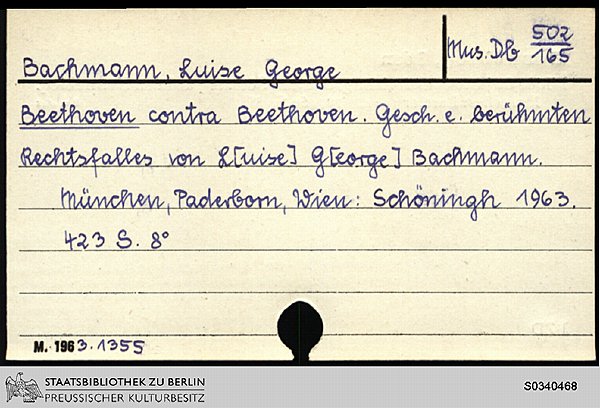 Mus. Db 502/165
Bachmann, Luise George
Beethoven contra Beethoven. Gesch. e. berühmten
Rechtsfalles von L[uise] G[eorge] Bachmann.
München, Paderborn, Wien: Schöningh 1963.
423 S. 8°
M. 1963.1355
STAATSBIBLIOTHEK ZU BERLIN
PREUSSISCHER KULTURBESITZ
S0340468